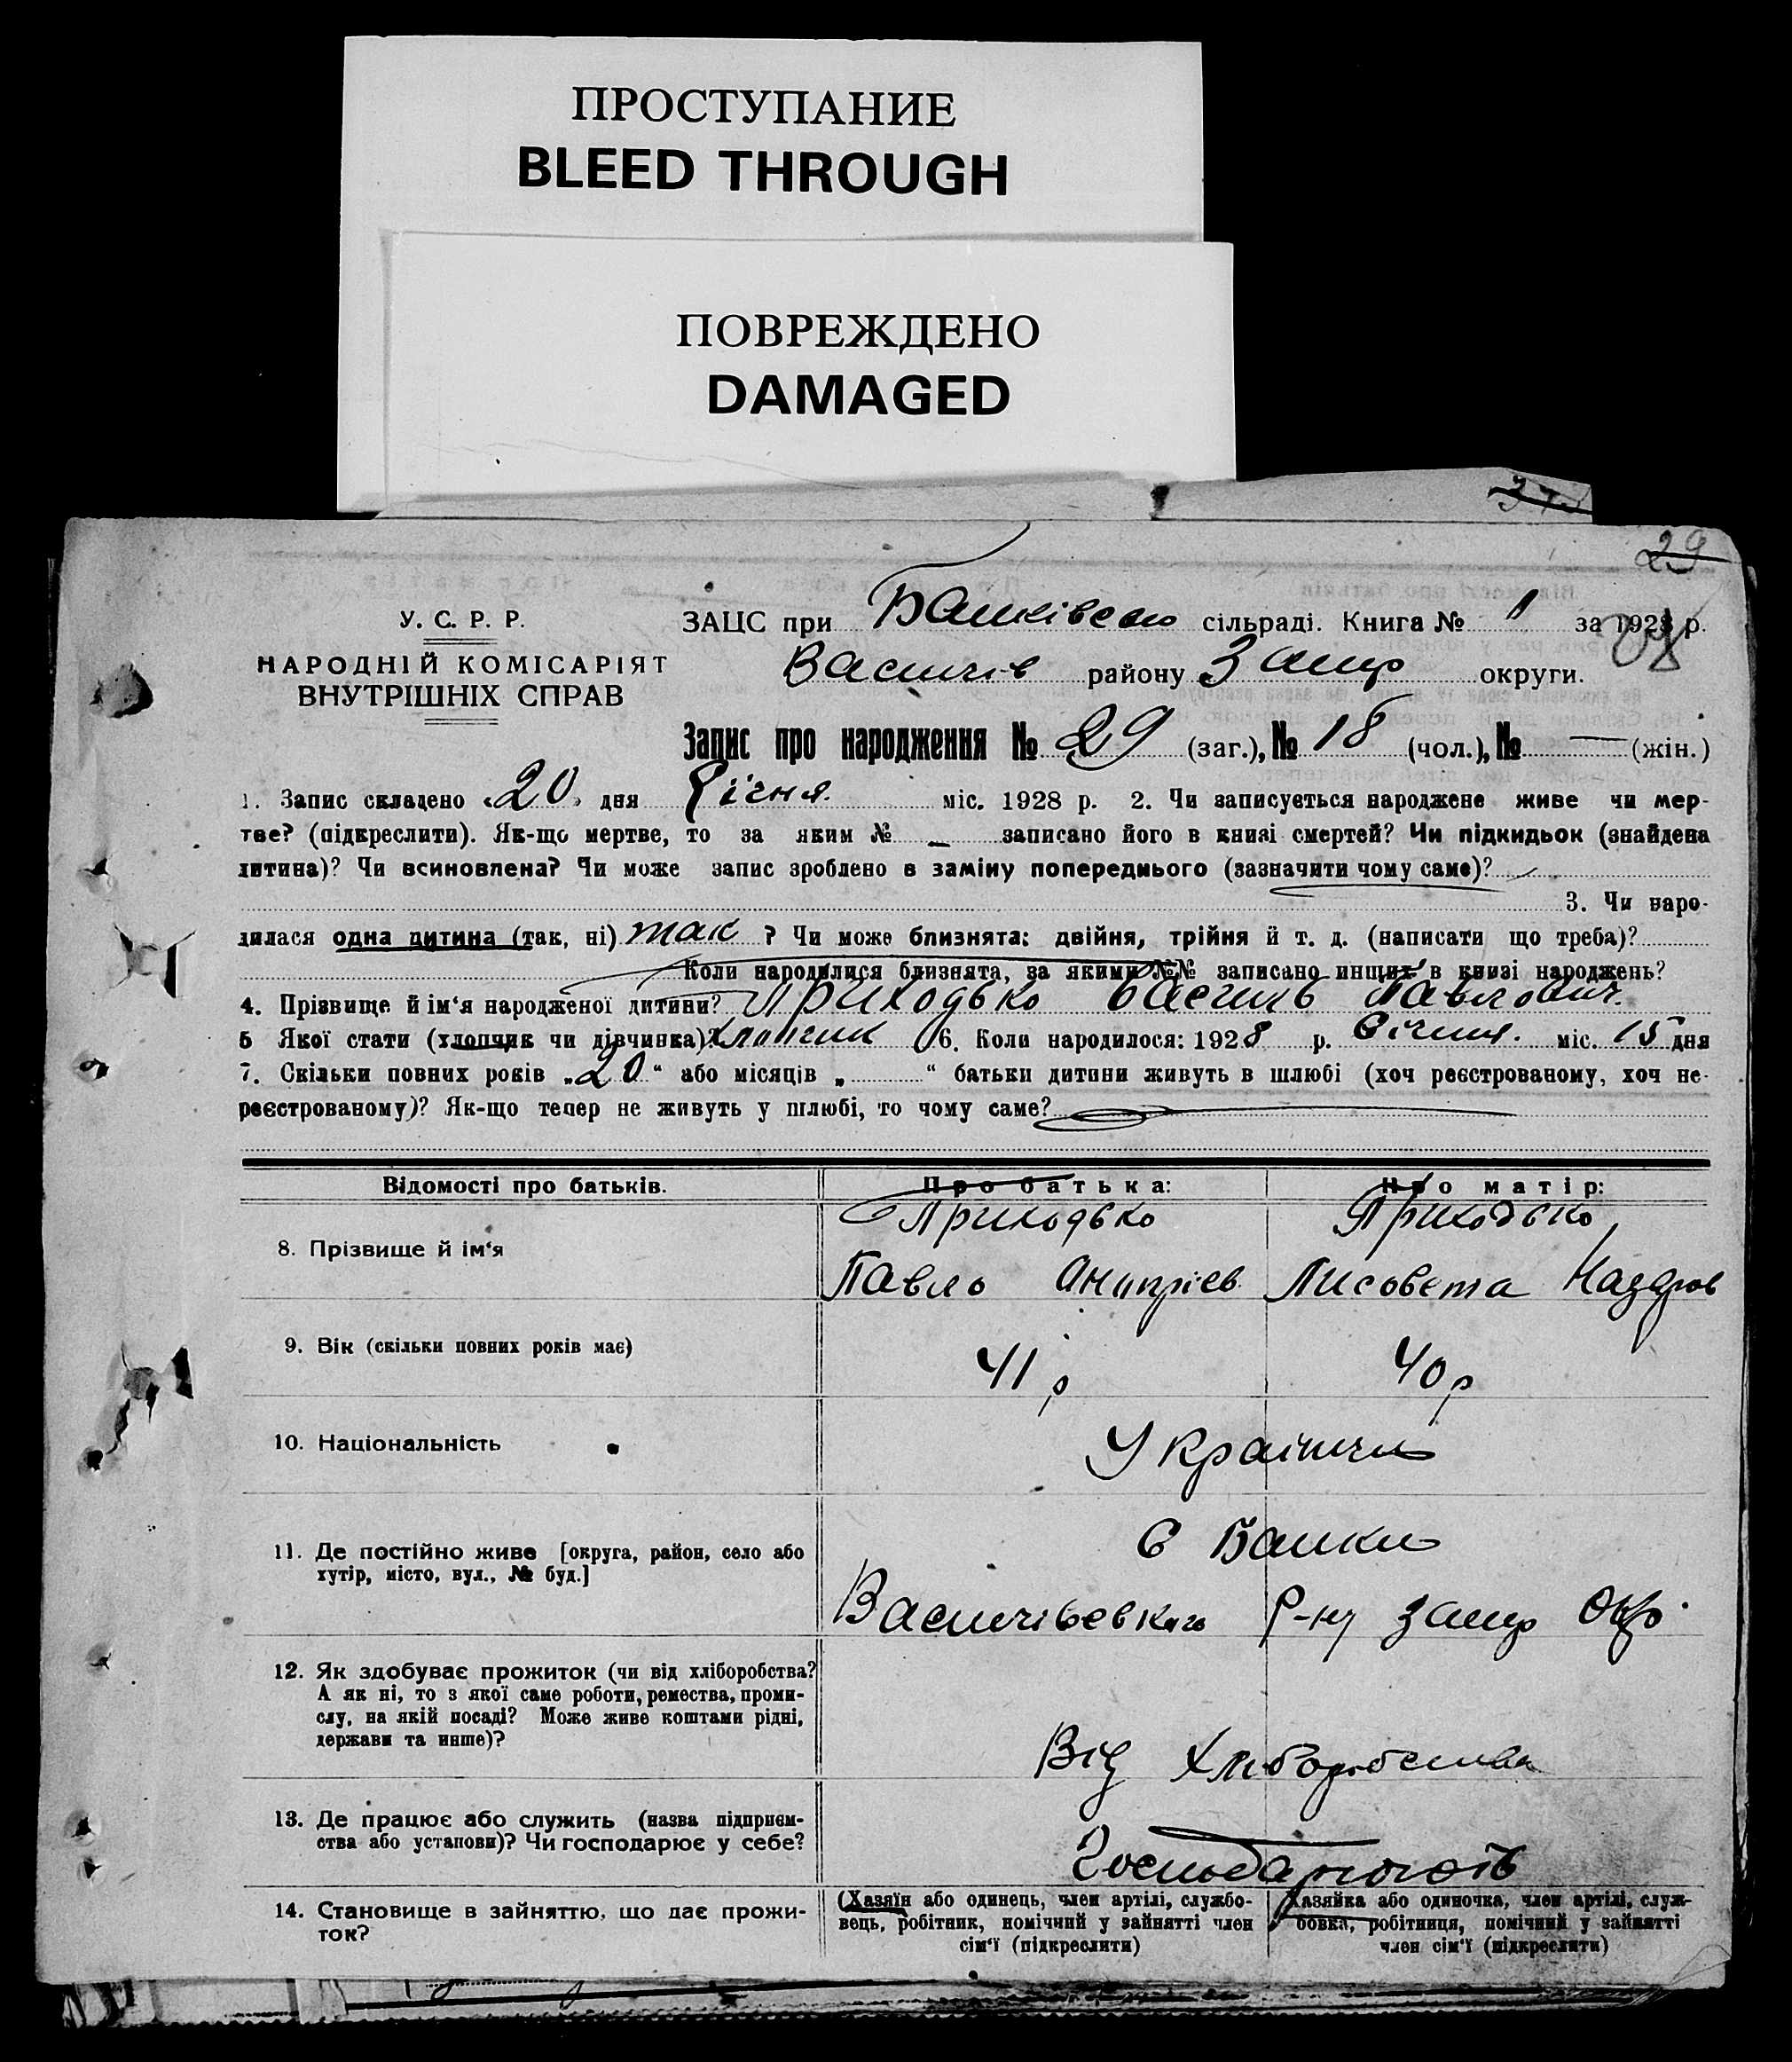 ПРОСТУПАНИЕ
BLEED THROUGH
ПОВРЕЖДЕНО
DAMAGED
37
29
У. С. Р. Р.
НАРОДНІЙ КОМІСАРІЯТ
ВНУТРІШНІХ СПРАВ
ЗАЦС при Балківською сільраді. Книга № 1 за 1928 р.
Василів району Запор округи.
Запис про народження № 29 (заг.), № 18 (чол.), № — (жін.)
1. Запис складено «20» дня Січня. міс. 1928 р. 2. Чи записується народжене живе чи мер-
тве? (підкреслити). Як-що мертве, то за яким № — записано його в книзі смертей? Чи підкидьок (знайдена
дитина)? Чи всиновлена? Чи може запис зроблено в заміну попереднього (зазначити чому саме)?
3. Чи наро-
дилася одна дитина (так, ні) так ? Чи може близнята: двійня, трійня й т. д. (написати що треба)?
Коли народилися близнята, за якими №№ записано инших в книзі народжень?
4. Прізвище й ім‘я народженої дитини? Приходько Василь Павлович.
5 Якої стати (хлопчик чи дівчинка)? Хлопчик 6. Коли народилося: 1928 р. Січня. міс. 15 дня
7. Скільки повних років „20“ або місяців „ “ батьки дитини живуть в шлюбі (хоч реєстрованому, хоч не-
реєстрованому)? Як-що тепер не живуть у шлюбі, то чому саме?
Відомості про батьків. Про батька: Про матір:
8. Прізвище й ім‘я
Приходько Приходько
Павло Онипріев Лисовета Назаров
9. Вік (скільки повних років має)
41 р 40 р
10. Національність
Українці
11. Де постійно живе [округа, район, село або
хутір, місто, вул., № буд.]
С Балки
Васильівського Р-ну Запор Окр.
12. Як здобуває прожиток (чи від хліборобства?
А як ні, то з якої саме роботи, ремества, проми-
слу, на якій посаді? Може живе коштами рідні,
держави та инше)?
Від Хліборобства
13. Де працює або служить (назва підприєм-
ства або установи)? Чи господарює у себе?
14. Становище в зайняттю, що дає прожи-
ток?
(Хазяїн або одинець, член артілі, службо-
вець, робітник, помічний у зайнятті член
сім‘ї (підкреслити)
Хазяйка або одиночка, член артілі, служ-
бовка, робітниця, помічний у зайнятті
член сім‘ї (підкреслити)